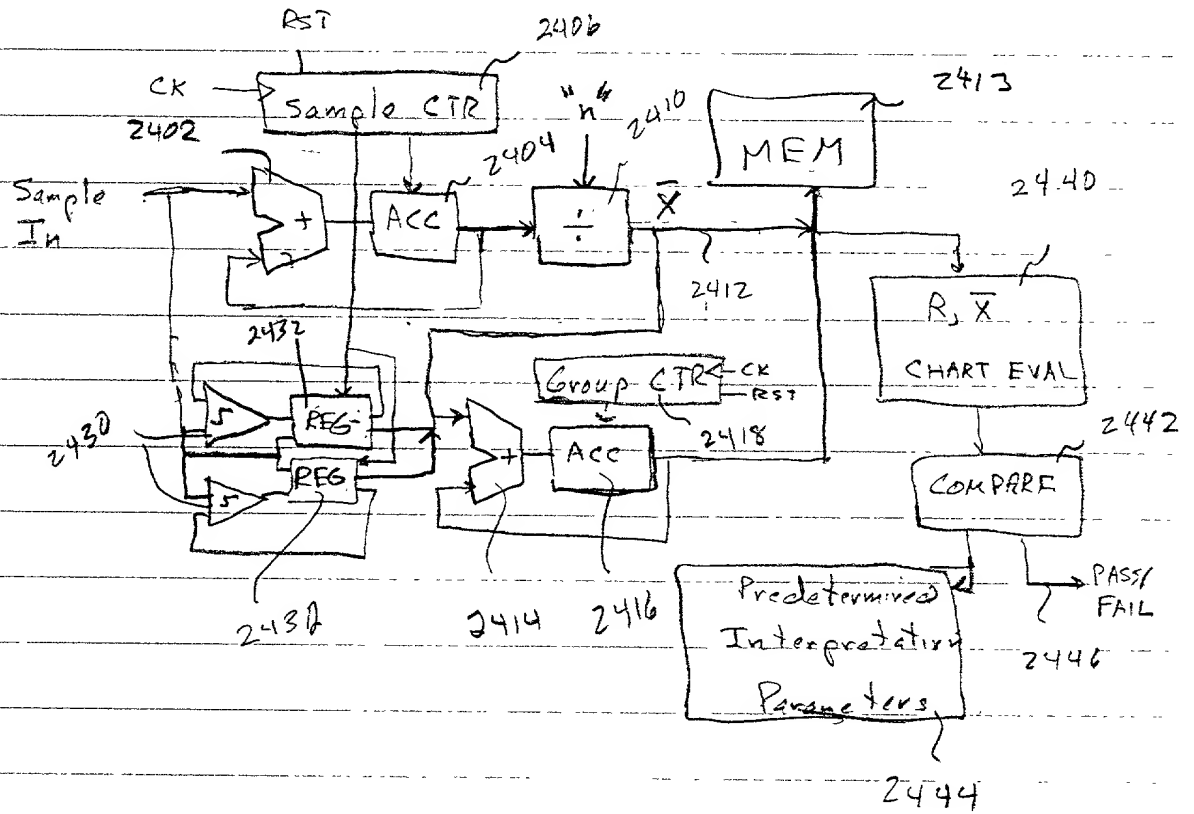 RST
2406
CK
Sample CTR
"n"
2410
2413
2402
MEM
2404
Sample
In
+
ACC
÷
X̅
2440
2412
R, X̅
CHART EVAL
2432
Group CTR
CK
RST
REG
2418
2442
2430
+
ACC
REG
COMPARE
PASS/
FAIL
2432
2414
2416
Predetermined
Interpretation
Parameters
2446
2444